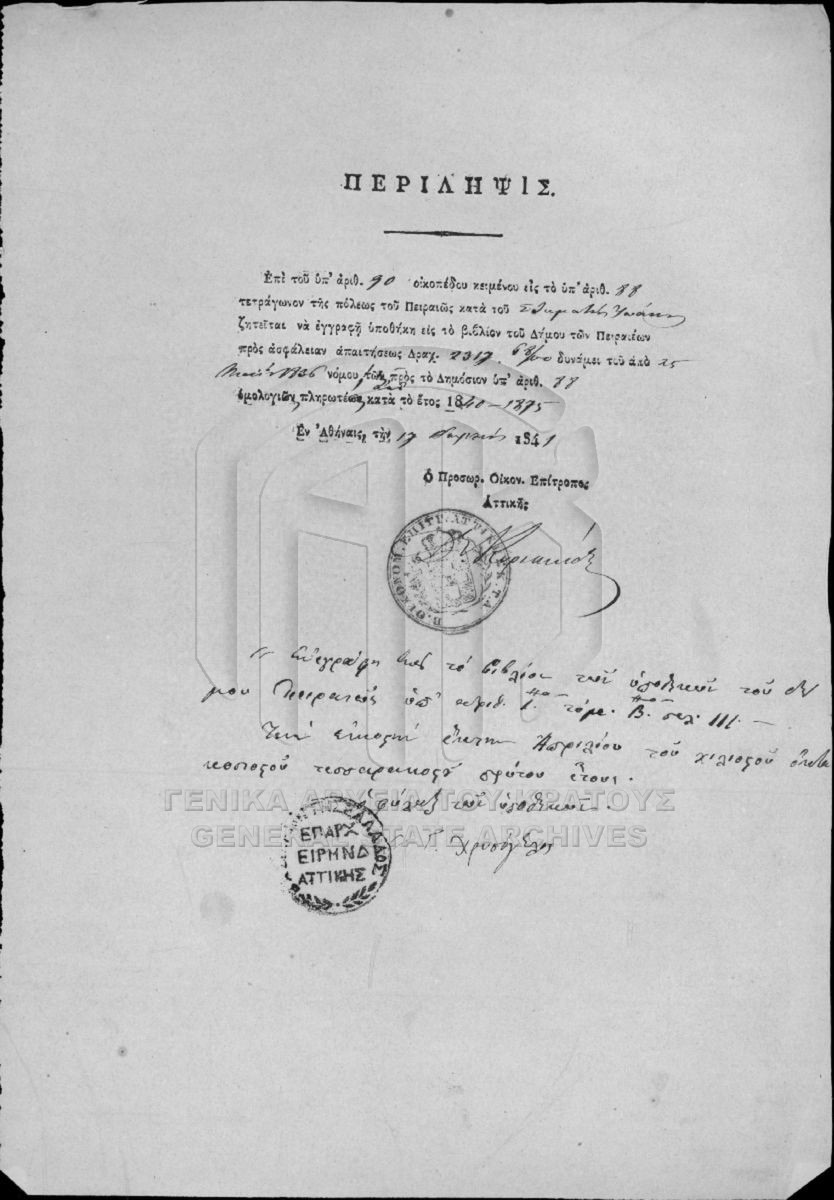 ΠΕΡΙΛΗΨΙΣ.
Ἐπὶ τοῦ ὑπ' ἀριθ. 90 οἰκοπέδου κειμένου εἰς τὸ ὑπ' ἀριθ. 88
τετράγωνον τῆς πόλεως τοῦ Πειραιῶς κατὰ τοῦ
ζητεῖται νὰ ἐγγραφῇ ὑποθήκη εἰς τὸ βιβλίον τοῦ Δήμου τῶν Πειραιέων
πρὸς ἀσφάλειαν ἀπαιτήσεως Δραχ. 2317. 68/100 δυνάμει τοῦ ἀπὸ 25
1836 νόμου, τῶν πρὸς τὸ Δημόσιον ὑπ' ἀριθ. 88
ὁμολογιῶν πληρωτέων κατὰ τὸ ἔτος 1840-1875
Ἐν Ἀθήναις, τὴν 17 1841
Ὁ Προσωρ. Οἰκον. Ἐπίτροπος
Ἀττικῆς
Β. ΟΙΚΟΝΟΜ. ΕΠΙΤΡ. ΑΤΤΙΚΗΣ Κ.Τ.Λ.
Ἐνεγράφη εἰς τὸ βιβλίον τῶν ὑποθηκῶν τοῦ δή
μου Πειραιῶς ὑπ' ἀριθ. 1. τόμ. Β. σελ. 111.
Τὴν εἰκοστὴν ἕκτην Ἀπριλίου τοῦ χιλιοστοῦ ὀκτα
κοσιοστοῦ τεσσαρακοστοῦ πρώτου ἔτους.
Ὁ φύλαξ τῶν ὑποθηκῶν.
ΓΕΝΙΚΑ ΑΡΧΕΙΑ ΤΟΥ ΚΡΑΤΟΥΣ
GENERAL STATE ARCHIVES
ΤΗΣ ΕΛΛΑΔΟΣ
ΕΠΑΡΧ
ΕΙΡΗΝΟΔ
ΑΤΤΙΚΗΣ